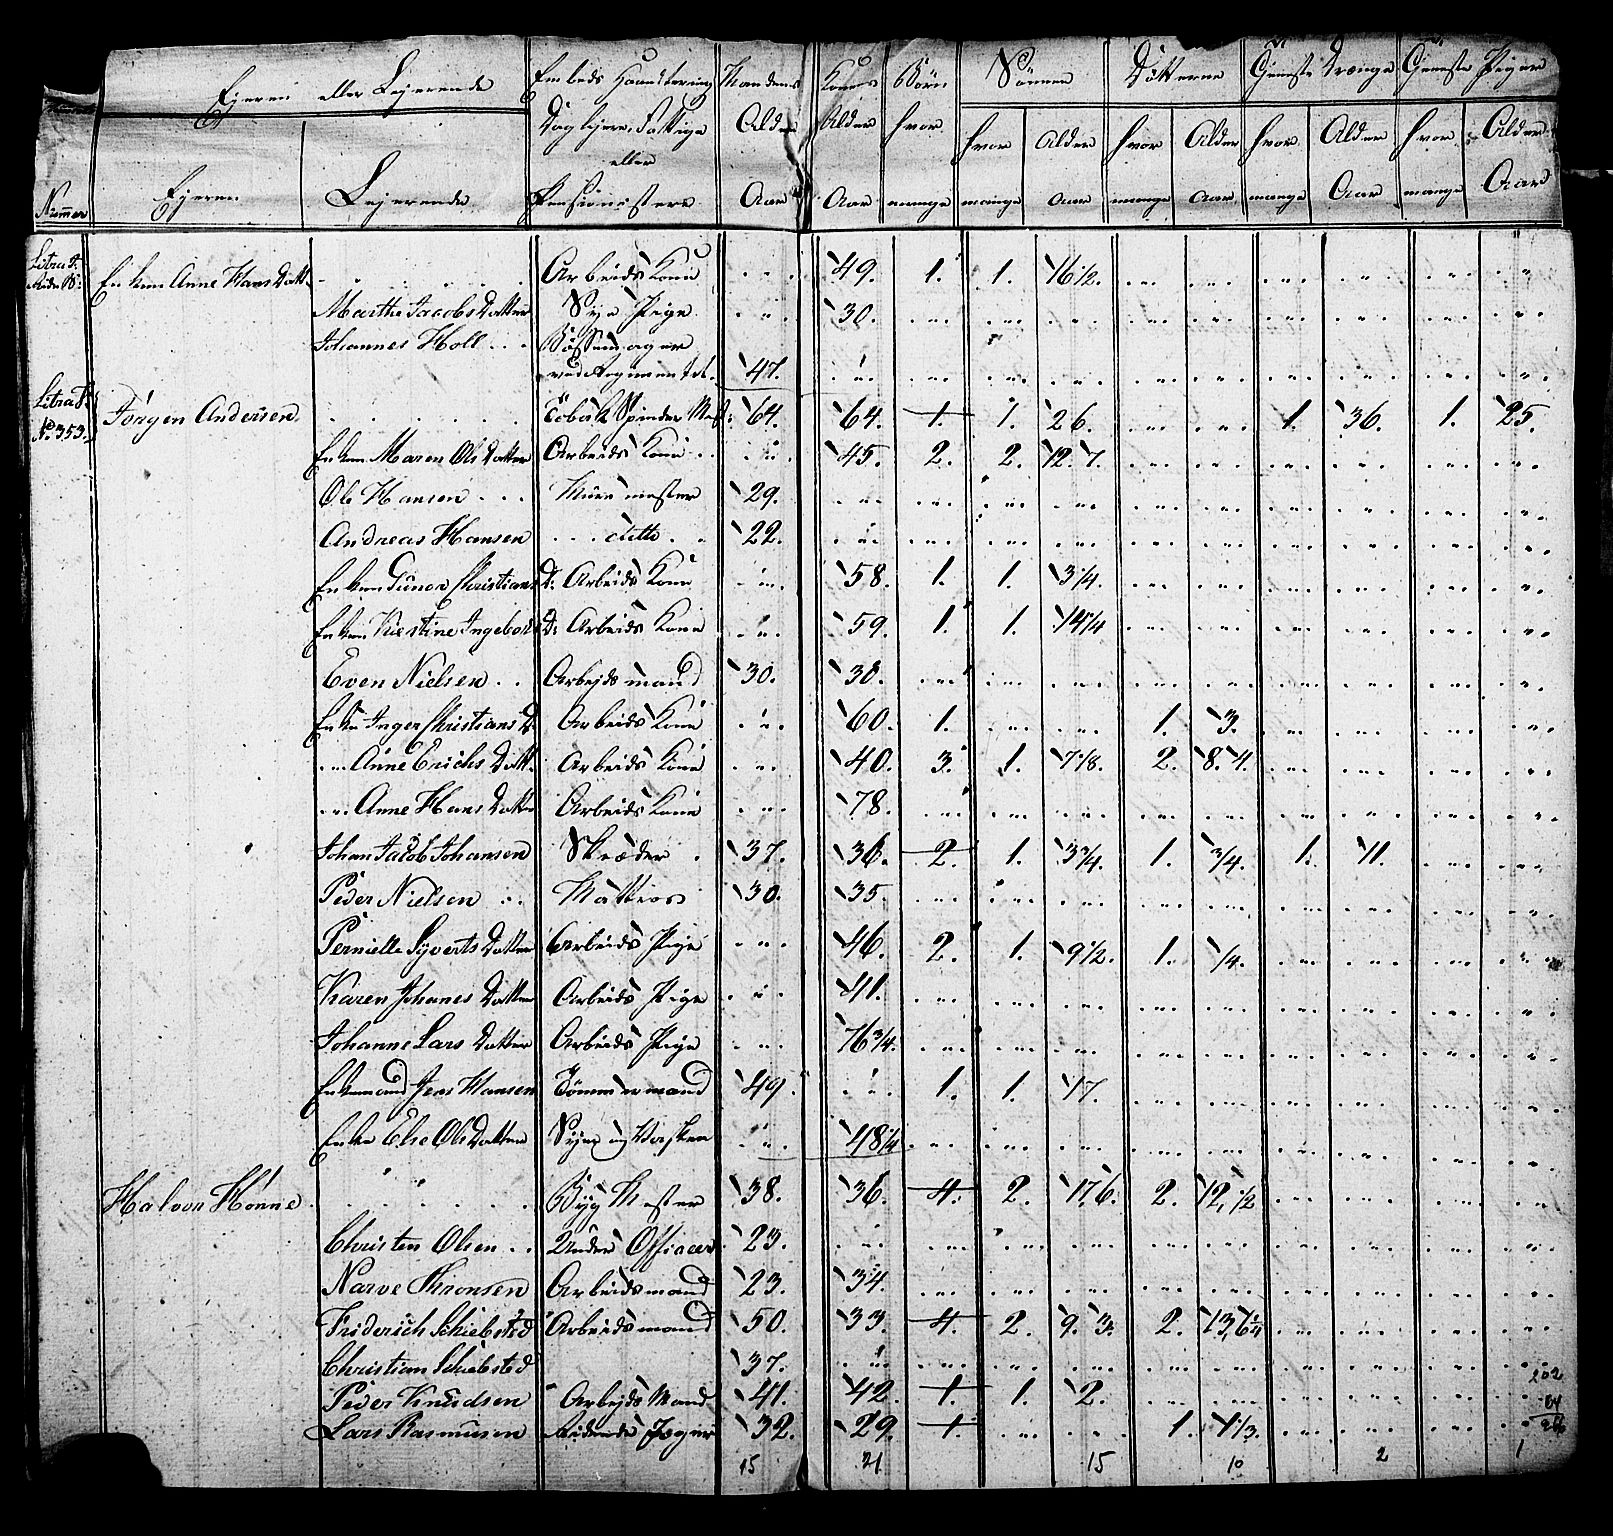 Ejeren eller Lejerende | Embeds Haandtering Daglejere, Fattige eller Pensionisters | Mandens Alder Aar | Konens Alder Aar | Börn hvor mange | Sönner | Dötterne | Tjeneste Drænge | Tjeneste Piger
Nummer | Ejeren | Lejerende | hvor mange | Alder Aar | hvor mange | Alder Aar | hvor mange | Alder Aar | hvor mange | Alder Aar
Litra
Enken Anne Hans Datt. | Arbeids Kone | 49. | 1. | 1. | 16 1/2.
Marthe Jacobs Datter | Sye Pige | 30.
Johannes Holl | Bössemager
ved Regimentet. | 47.
Litra
No 353. | Jörgen Andersen. | Tobak Spinder Mest: | 64. | 64. | 1. | 1. | 26. | 1. | 36. | 1. | 25.
Enken Maren Ols Datter | Arbeids Kone | 45. | 2. | 2. | 12. 7.
Ole Hansen | Muremester | 29.
Andreas Hansen | ditto | 22.
Enken Gunor Christians D: | Arbeids Kone | 58. | 1. | 1. | 3/4.
Enken Kiestine Ingebors D: | Arbeids Kone | 59. | 1. | 1. | 14 1/4
Even Nielsen | Arbejdsmand | 30. | 30.
Enke Inger Christians D. | Arbeids Kone | 60. | 1. | 1. | 3.
" Anne Erichs Datt. | Arbeids Kone | 40. | 3. | 1. | 7/8. | 2. | 8. 4.
" Anne Hans Datter | Arbeids Kone | 78.
Johan Jacob Johansen | Skræder | 37. | 36. | 2. | 1. | 3 3/4. | 1. | 3/4. | 1. | 11.
Peder Nielsen | Mattros | 30. | 35.
Pernielle Syverts Datter | Arbeids Pige | 46. | 2. | 1. | 9 1/2. | 1. | 1/4.
Karen Johanes Datter | Arbeids Pige | 41.
Johanne Lars Datter | Arbeids Pige | 16 3/4.
Enkemand Jens Hansen | Tömmermand | 49. | 1. | 1. | 17.
Enke Else Ols Datter | Syer og Vasker | 48 1/4
Halvor Hönne | Byg Mester | 38. | 36. | 4. | 2. | 17, 6. | 2. | 12, 1/2
Christen Olsen | Under Officeer | 23.
Narve Thronsen | Arbeidsmand | 23. | 34.
Friderich Schiebsted | Arbeidsmand | 50. | 33. | 4. | 2. | 9. 3. | 2. | 13, 6 1/4
Christian Schiebsted | 37.
Peder Knudsen | Arbejds Mand | 41. | 42. | 1. | 1. | 2.
Lars Rasmusen | Ridende Jeger | 32. | 29. | 1. | 1. | 1 1/3.
202
64
266
15 | 21 | 15 | 10 | 2 | 1